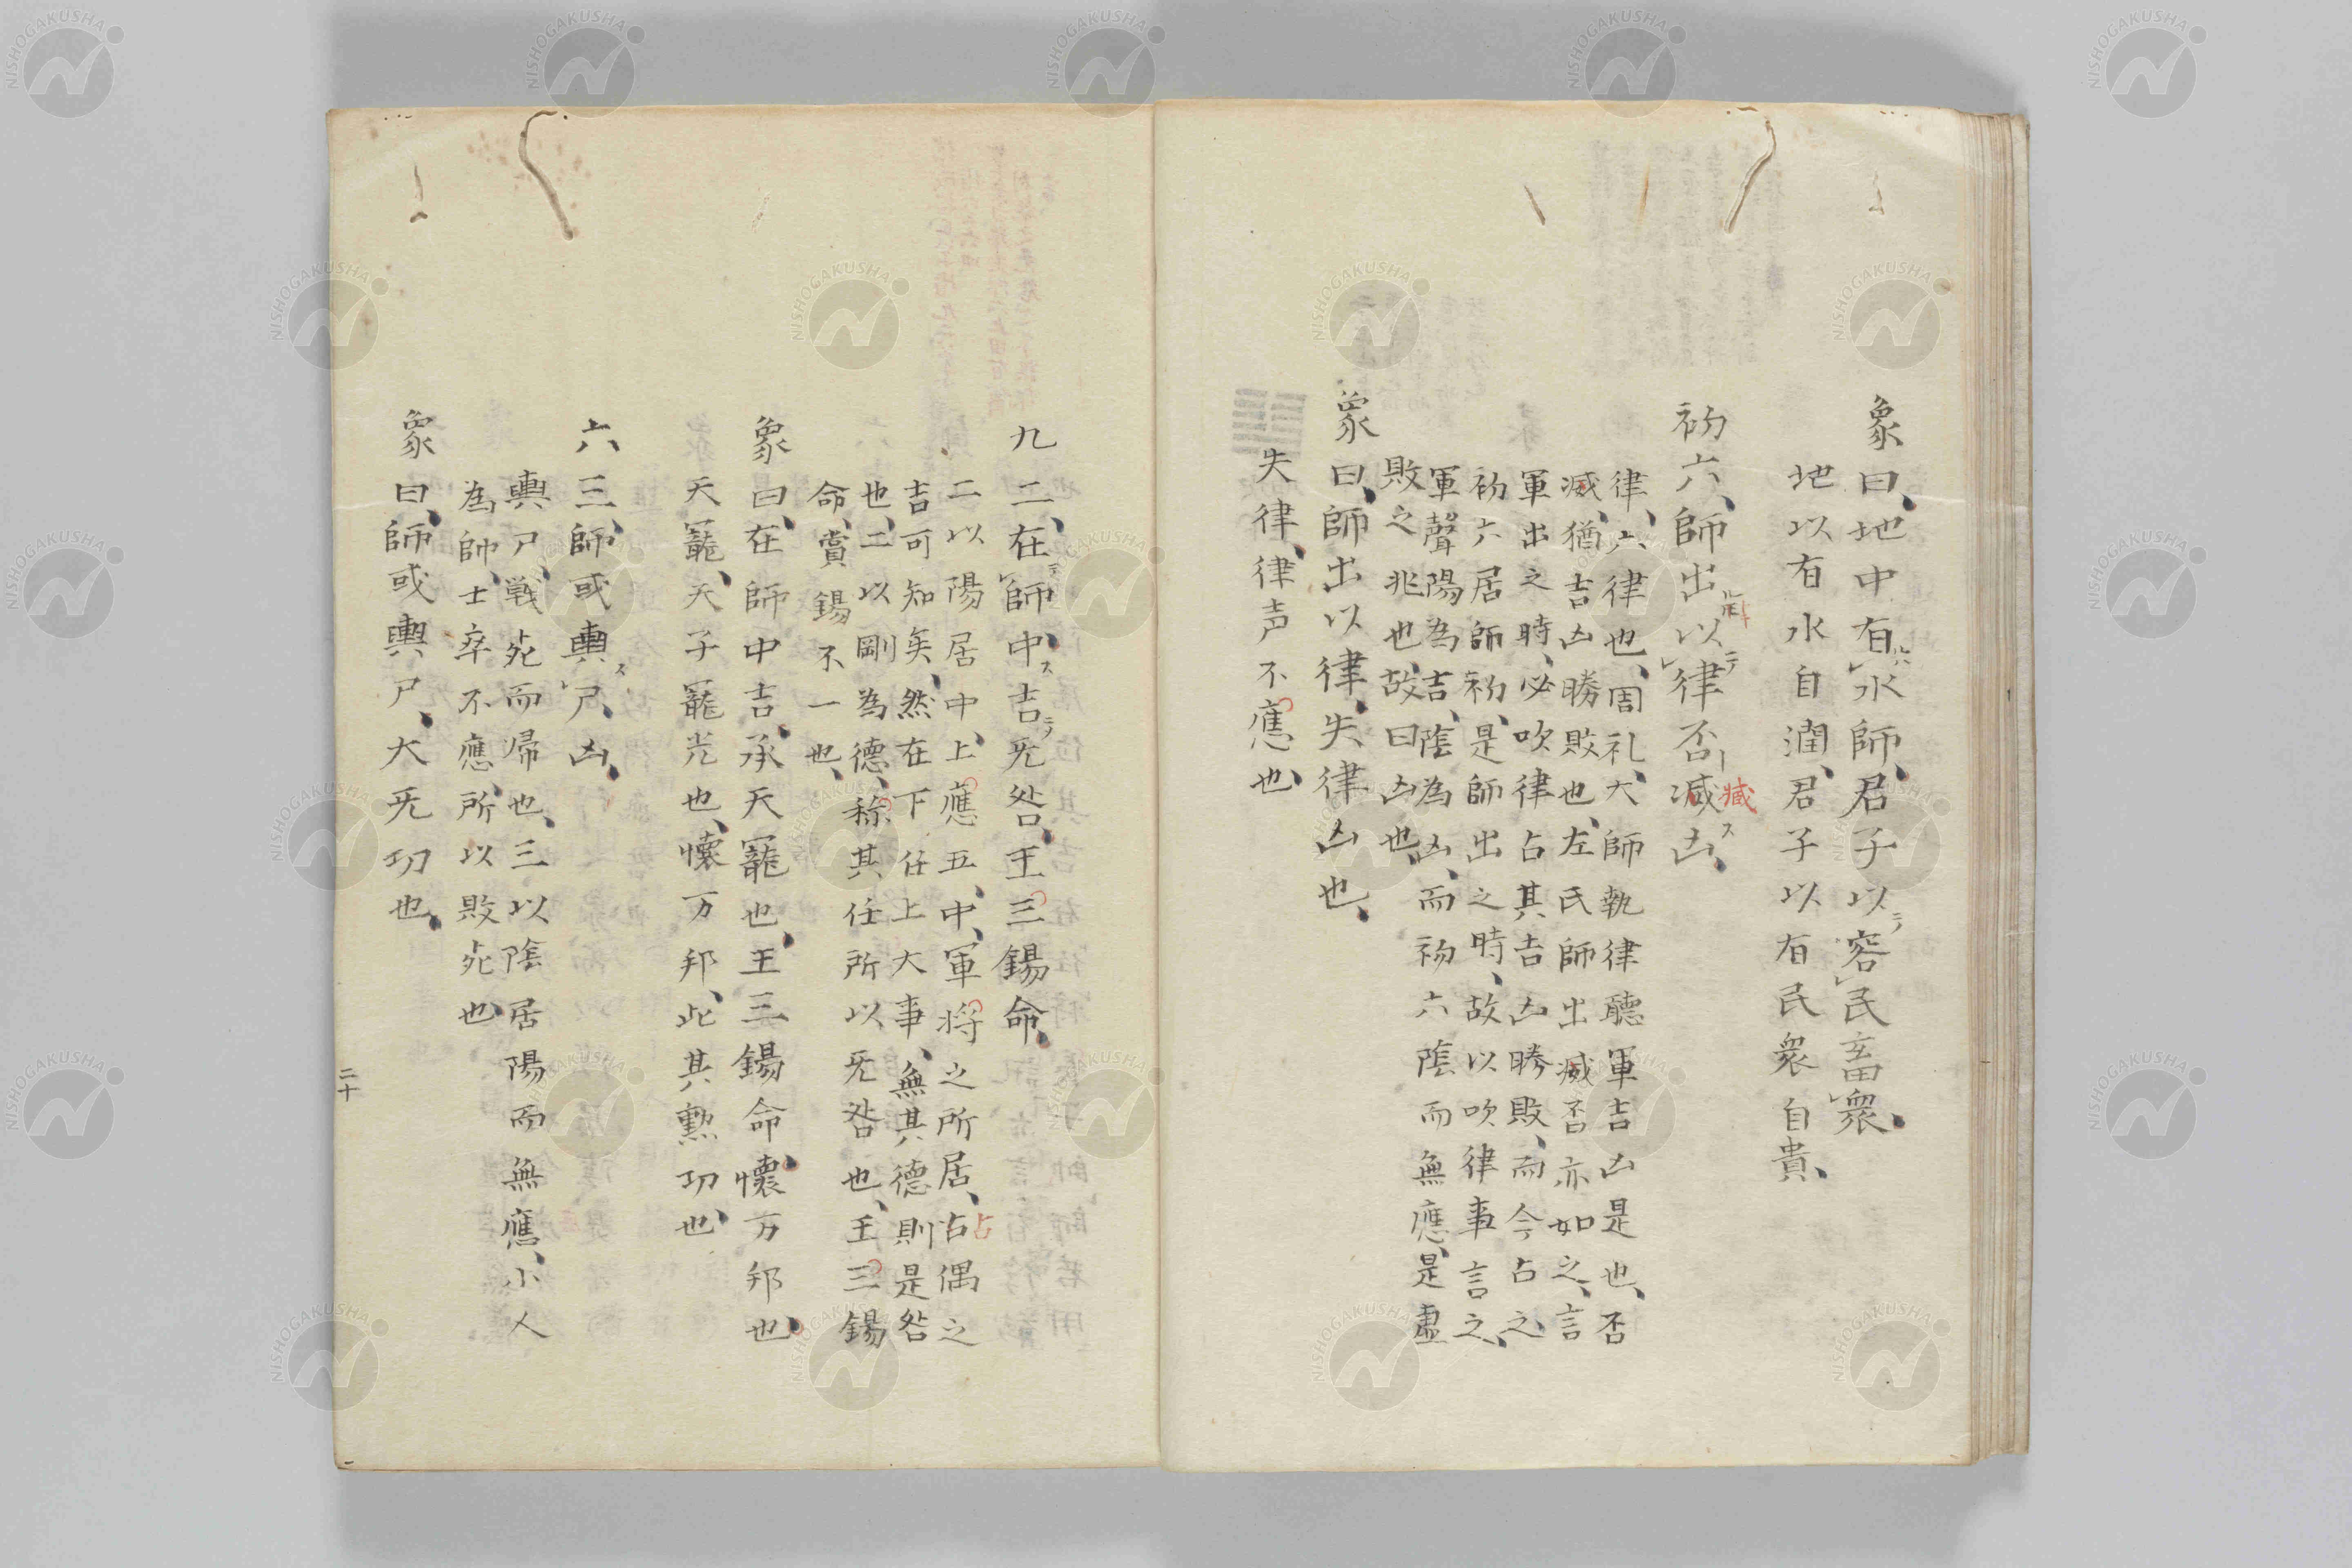 象曰、地中有水師、君子以容民畜衆、
地以有水自潤、君子以有民衆自貴、
初六、師出以律否減凶、
臧
律、六律也、周礼、大師執律聽軍吉凶是也、否
減、猶吉凶勝敗也、左氏師出減否亦如之、言
軍出之時、必吹律占其吉凶勝敗、而今占之、
初六居師初、是師出之時、故以吹律事言之、
軍聲陽為吉、陰為凶、而初六陰而無應、是虛
敗之兆也、故曰凶也、
象曰、師出以律、失律凶也、
失律、律声不應也、
九二、在師中、吉无咎、王三錫命、
二以陽居中、上應五、中、軍将之所居、占偶之
占
吉可知矣、然在下任上大事、無其德則是咎
也、二以剛為德、称其任所以无咎也、王三錫
命、賞錫不一也、
象曰、在師中吉、承天寵也、王三錫命、懷万邦也、
天寵、天子寵光也、懷万邦、此其勲功也、
六三、師或輿尸、凶、
輿尸、戦死而帰也、三以陰居陽而無應、小人
為帥、士卒不應、所以敗死也、
象曰、師或輿尸、大无功也、
二十
NISHOGAKUSHA